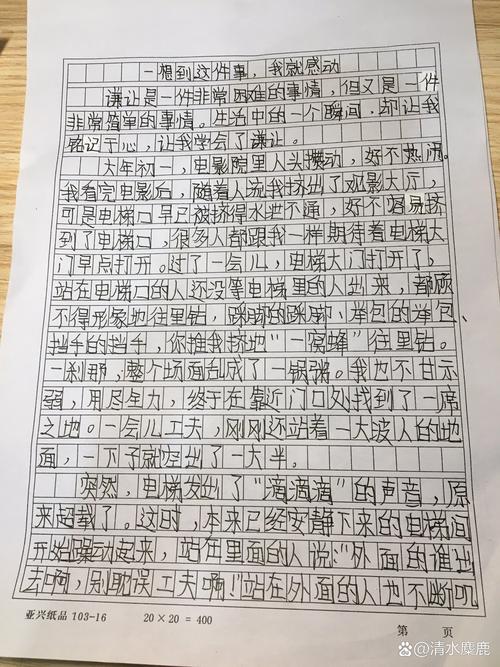 一想到这件事，我就感动
谦让是一件非常困难的事情，但又是一件
非常简单的事情。生活中的一个瞬间，却让我
铭记于心，让我学会了谦让。
大年初一，电影院里人头攒动，好不热闹。
我看完电影后，随着人流我挤出了观影大厅，
可是电梯口早已被挤得水泄不通，好不容易挤
到了电梯口，很多人都跟我一样期待着电梯大
门早点打开。过了一会儿，电梯大门打开了，
站在电梯口的人还没等电梯里的人出来，都顾
不得形象地往里钻，踩脚的踩脚、举包的举包、
挡手的挡手，你推我挤地“一窝蜂”往里钻。
一刹那，整个场面乱成了一锅粥。我也不甘示
弱，用尽全力，终于在靠近门口处找到了一席
之地。一会儿工夫，刚刚还站着一大波人的地
面，一下子就空出了一大半。
突然，电梯发出了“滴滴滴”的声音，原
来超载了。这时，本来已经安静下来的电梯间
开始躁动起来，站在里面的人说：“外面的谁出
去啊，别耽误工夫啊！”站在外面的人也不断叽
亚兴纸品 103-16 20×20=400 第 页
@清水麋鹿